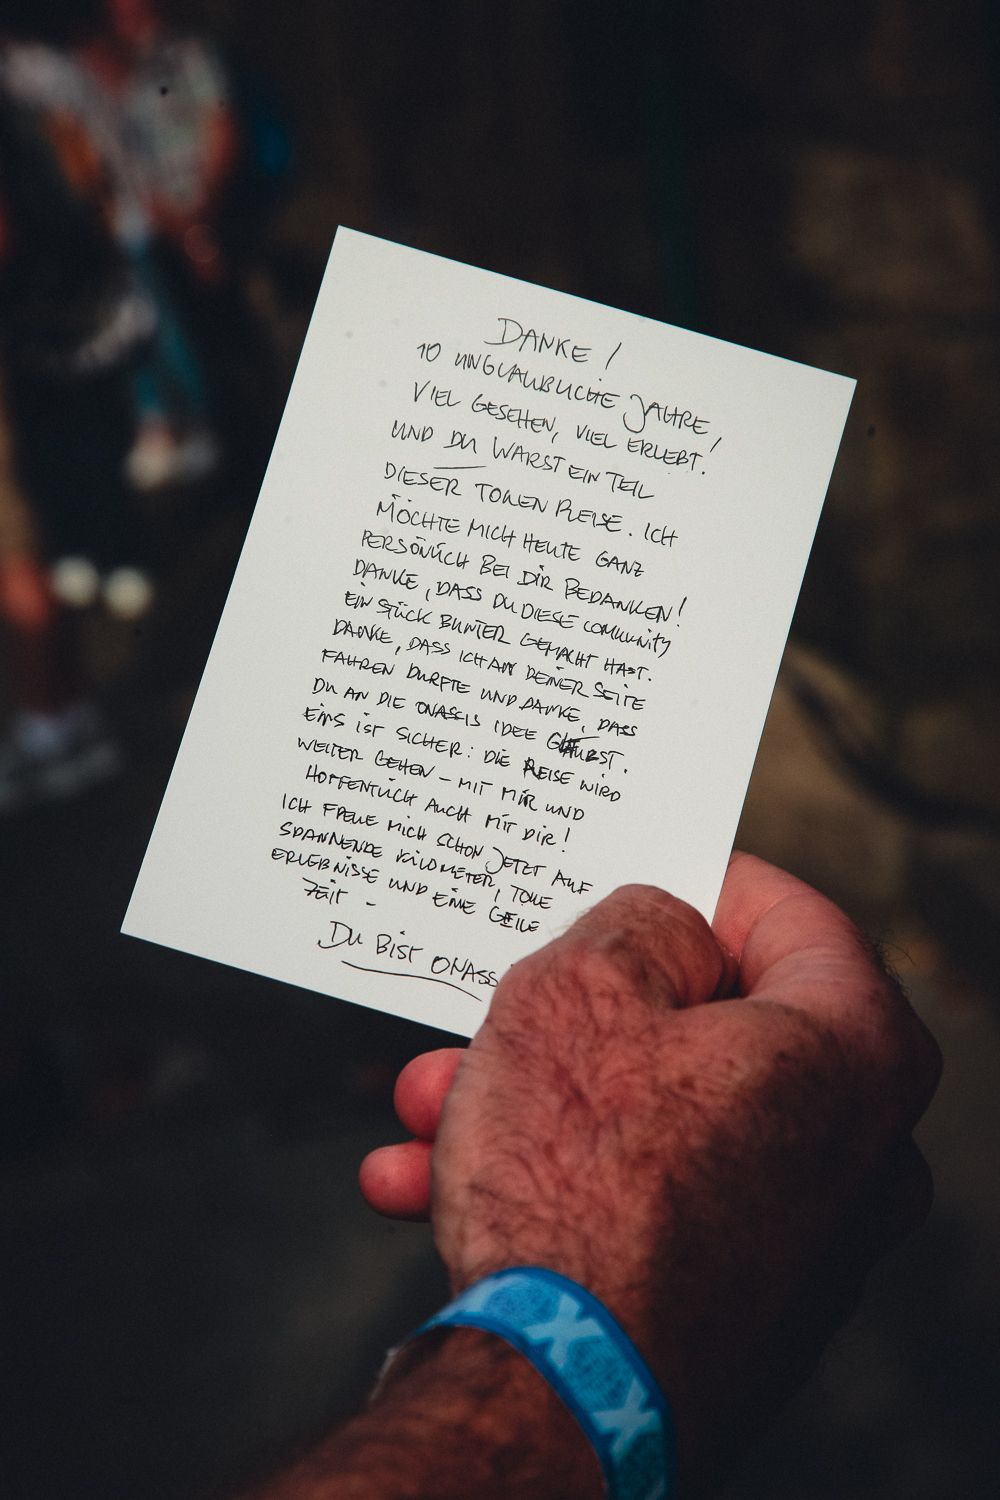 DANKE!
10 UNGLAUBLICHE JAHRE!
VIEL GESEHEN, VIEL ERLEBT.
UND DU WARST EIN TEIL
DIESER TOLLEN REISE. ICH
MÖCHTE MICH HEUTE GANZ
PERSÖNLICH BEI DIR BEDANKEN!
DANKE, DASS DU DIESE COMMUNITY
EIN STÜCK BUNTER GEMACHT HAST.
DANKE, DASS ICH AN DEINER SEITE
FAHREN DURFTE UND DANKE, DASS
DU AN DIE ONASSIS IDEE GLAUBST.
EINS IST SICHER: DIE REISE WIRD
WEITER GEHEN – MIT MIR UND
HOFFENTLICH AUCH MIT DIR!
ICH FREUE MICH SCHON JETZT AUF
SPANNENDE KILOMETER, TOLLE
ERLEBNISSE UND EINE GEILE
ZEIT –
DU BIST ONASS
X X